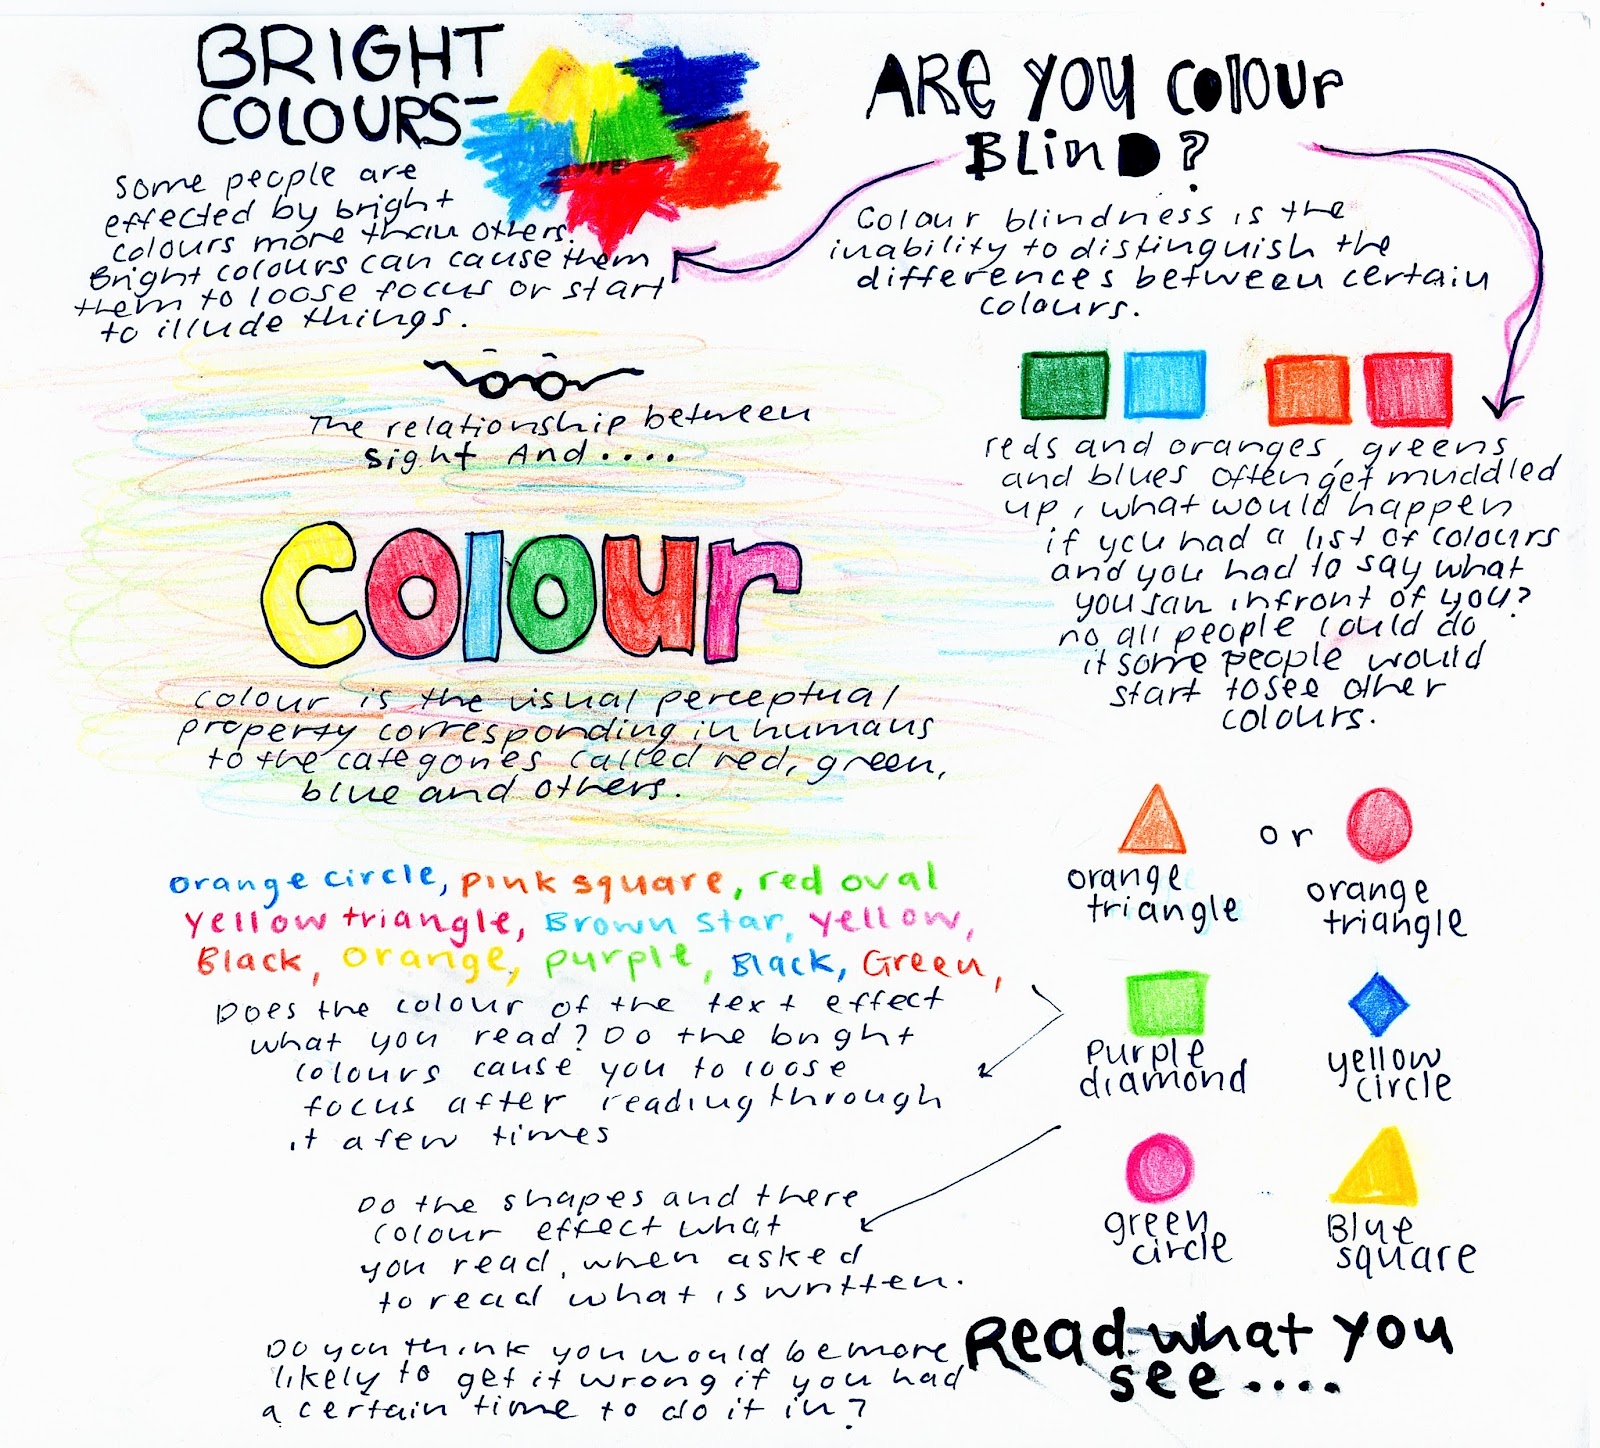 BRIGHT
COLOURS-
Some people are
effected by bright
colours more than others.
Bright colours can cause them
them to loose focus or start
to illude things.
ARE YOU COLOUR
BLIND?
Colour blindness is the
inability to distinguish the
differences between certain
colours.
reds and oranges, greens
and blues often get muddled
up, what would happen
if you had a list of colours
and you had to say what
you san infront of you?
no all people could do
it some people would
start to see other
colours.
The relationship between
sight And....
colour
colour is the visual perceptual
property corresponding in humans
to the categories called red, green,
blue and others.
orange circle, pink square, red oval
yellow triangle, Brown star, yellow,
Black, orange, purple, Black, Green,
Does the colour of the text effect
what you read? Do the bright
colours cause you to loose
focus after reading through
it a few times
Do the shapes and there
colour effect what
you read, when asked
to read what is written.
Do you think you would be more
likely to get it wrong if you had
a certain time to do it in?
or
orange
triangle
orange
triangle
Purple
diamond
yellow
circle
green
circle
Blue
square
Read what you
see....